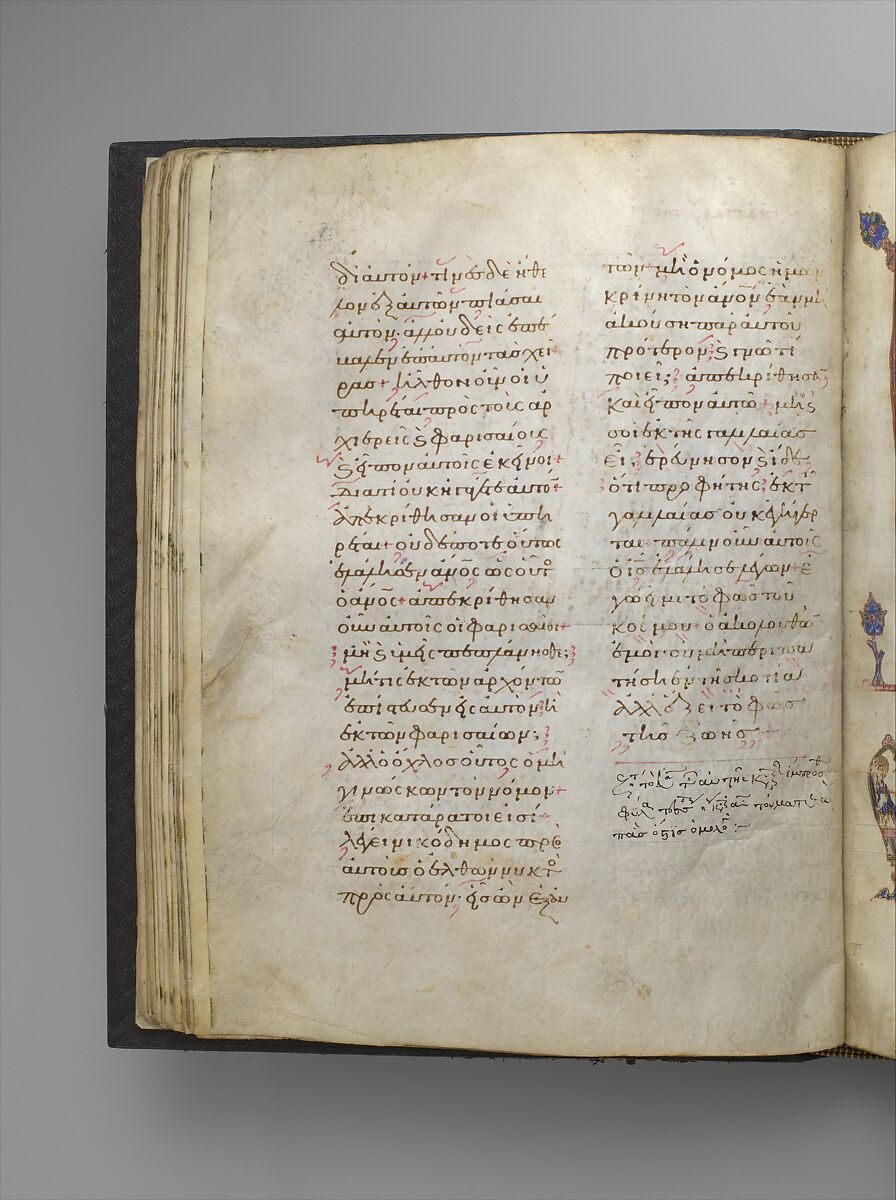 δι αὐτόν + τινὲς δὲ ἤθε
λον ἐξ αὐτῶν πιάσαι
αὐτόν· ἀλλ οὐδεὶς ἐπέ
βαλεν ἐπ αὐτὸν τὰς χεῖ
ρας + ἦλθον οὖν οἱ ὑ
πηρέται πρὸς τοὺς ἀρ
χιερεῖς ϗ φαρισαίους
ϗ εἶπον αὐτοῖς ἐκεῖνοι +
διατί οὐκ ἠγάγετε αὐτόν +
ἀπεκρίθησαν οἱ ὑπη
ρέται + οὐδέποτε οὕτως
ἐλάλησεν ἄνος ὡς οὗτος
ὁ ἄνος + ἀπεκρίθησαν
οὖν αὐτοῖς οἱ φαρισαῖοι +
μὴ ϗ ὑμεῖς πεπλάνησθε;
μή τις ἐκ τῶν ἀρχόντων
ἐπίστευσεν εἰς αὐτὸν ἢ
ἐκ τῶν φαρισαίων;
ἀλλ ὁ ὄχλος οὗτος ὁ μὴ
γινώσκων τὸν νόμον +
ἐπικατάρατοι εἰσί·
λέγει νικόδημος πρὸς
αὐτοὺς ὁ ἐλθὼν νυκτὸς
πρὸς αὐτόν· εἷς ὢν ἐξ αὐ
τῶν + μὴ ὁ νόμος ἡμῶν
κρίνει τὸν ἄνον ἐὰν μὴ
ἀκούση παρ αὐτοῦ
πρότερον ϗ γνῶ τί
ποιεῖ; ἀπεκρίθησαν
καὶ εἶπον αὐτῶ + μὴ ϗ
σὺ ἐκ τῆς γαλιλαίας
εἶ; ἐρεύνησον ϗ ἴδε
ὅτι προφήτης ἐκ τῆς
γαλιλαίας οὐκ ἐγήγερ
ται + πάλιν οὖν αὐτοῖς
ὁ ις ἐλάλησε λέγων + ἐ
γώ εἰμι τὸ φῶς τοῦ
κόσμου + ὁ ἀκολουθῶν
ἐμοὶ οὐ μὴ περιπα
τήση ἐν τῆ σκοτία
ἀλλ ἕξει τὸ φῶς
τῆς ζωῆς +